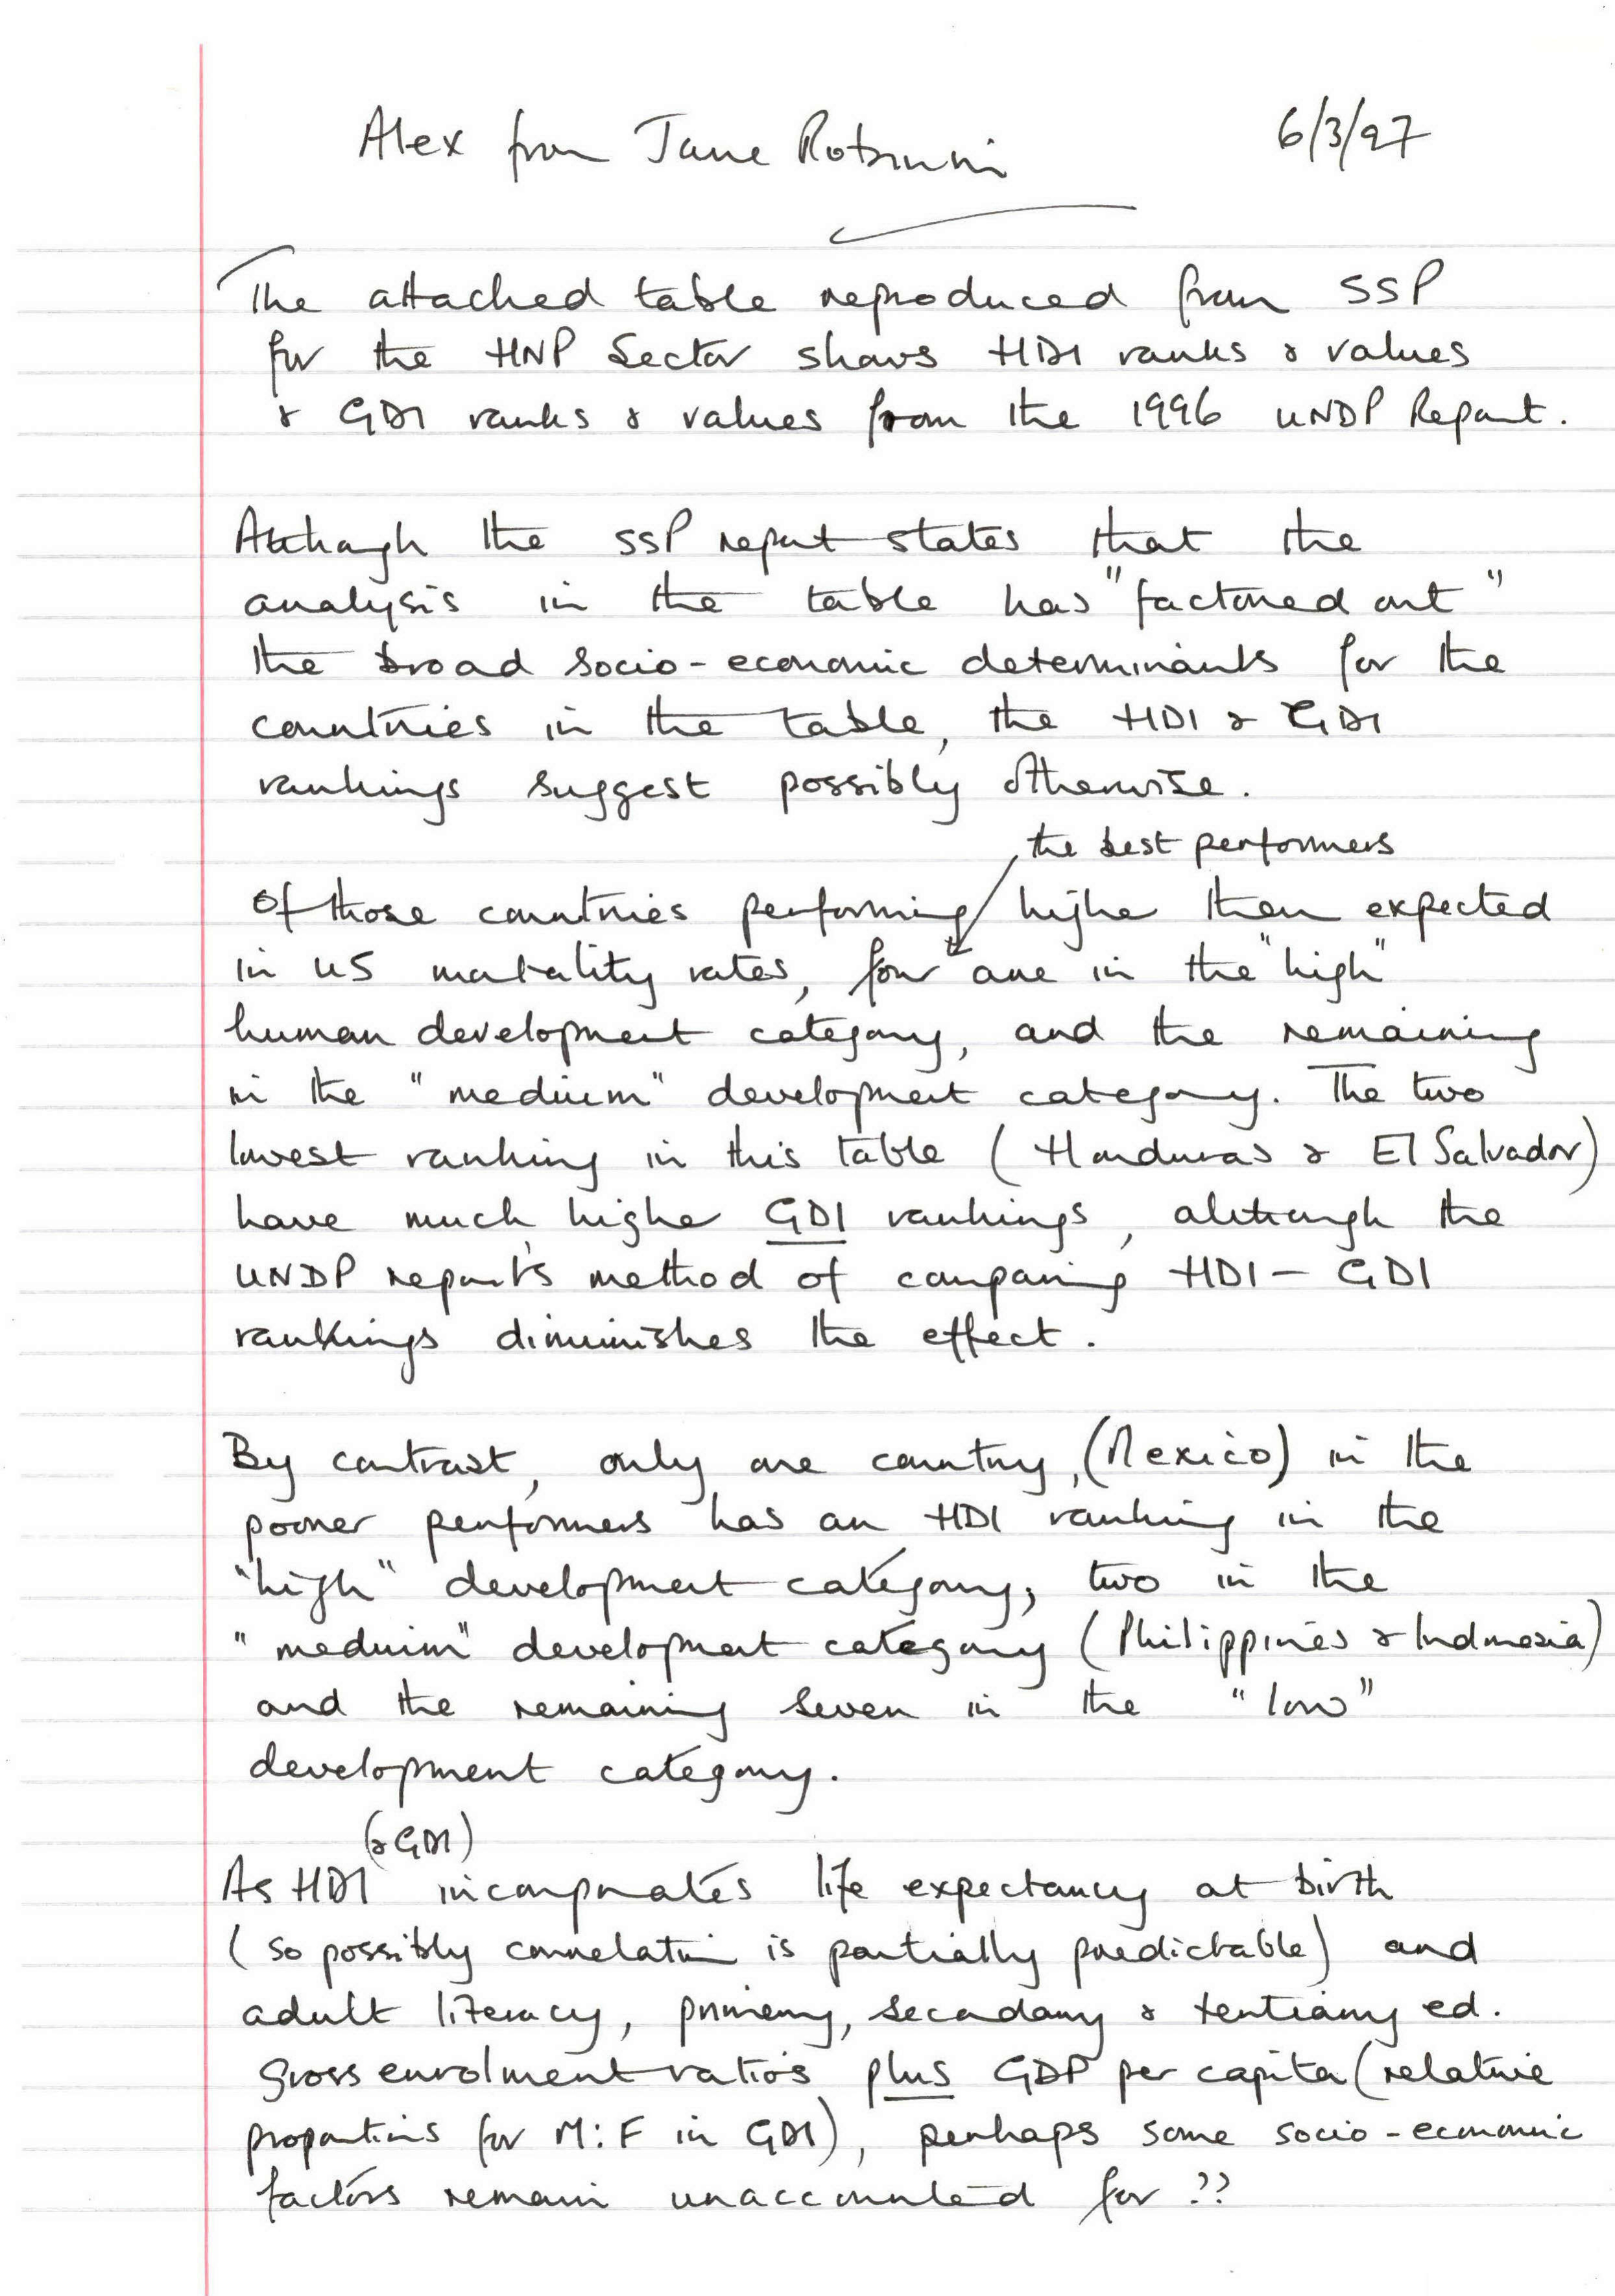 Alex from Jane Robinson 6/3/97
The attached table reproduced from SSP
for the HNP Sector shows HDI ranks & values
& GDI ranks & values from the 1996 UNDP Report.
Although the SSP report states that the
analysis in the table has "factored out"
the broad socio-economic determinants for the
countries in the table, the HDI & GDI
rankings suggest possibly otherwise.
the best performers
Of those countries performing higher than expected
in U5 mortality rates, four are in the "high"
human development category, and the remaining
in the "medium" development category. The two
lowest ranking in this table (Honduras & El Salvador)
have much higher GDI rankings, although the
UNDP report's method of comparing HDI - GDI
rankings diminishes the effect.
By contrast, only one country, (Mexico) in the
poorer performers has an HDI ranking in the
"high" development category; two in the
"medium" development category (Philippines & Indonesia)
and the remaining seven in the "low"
development category.
(& GDI)
As HDI incorporates life expectancy at birth
(so possibly correlation is partially predictable) and
adult literacy, primary, secondary & tertiary ed.
gross enrolment ratios plus GDP per capita (relative
proportions for M:F in GDI), perhaps some socio-economic
factors remain unaccounted for ??